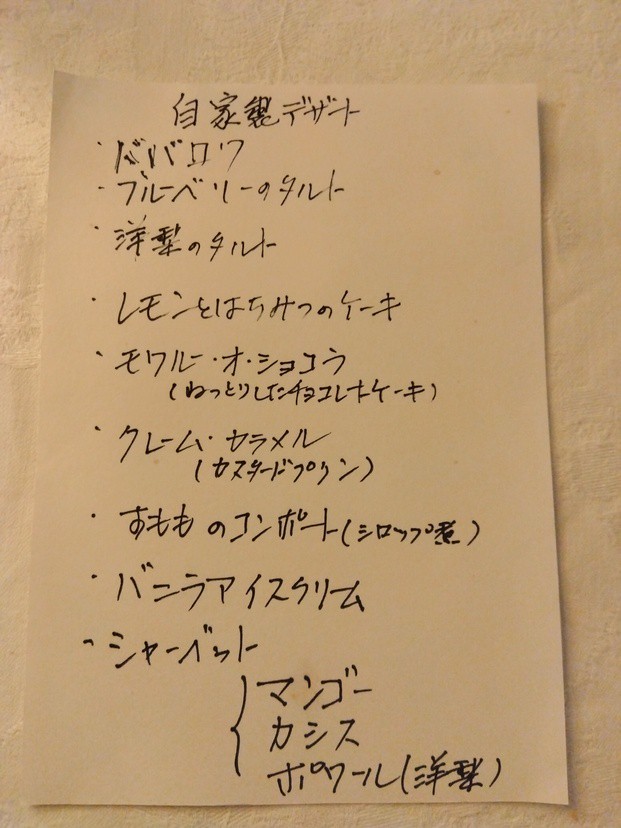 自家製デザート
・ババロワ
・ブルーベリーのタルト
・洋梨のタルト
・レモンとはちみつのケーキ
・モワルー・オ・ショコラ
(ねっとりしたチョコレートケーキ)
・クレーム・カラメル
(カスタードプリン)
・すもものコンポート(シロップ煮)
・バニラアイスクリーム
・シャーベット
マンゴー
カシス
ポワール(洋梨)